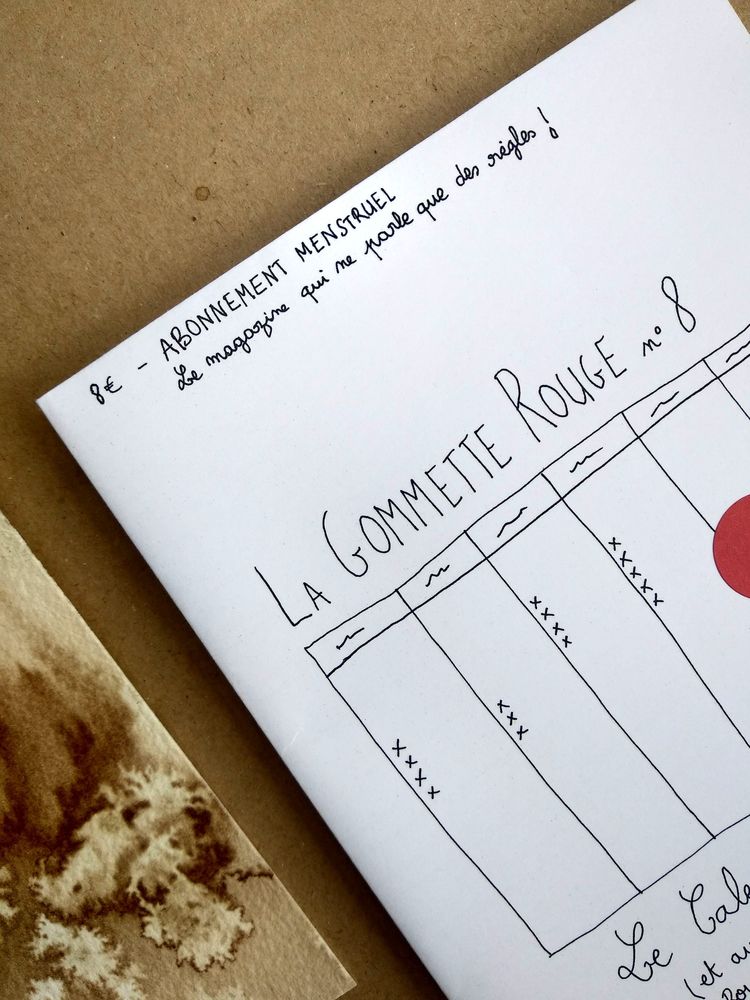 8€ - ABONNEMENT MENSTRUEL
Le magazine qui ne parle que des règles !
LA GOMMETTE ROUGE n° 8
x x x x
x x x
x x x x
x x x x x
Le
(et